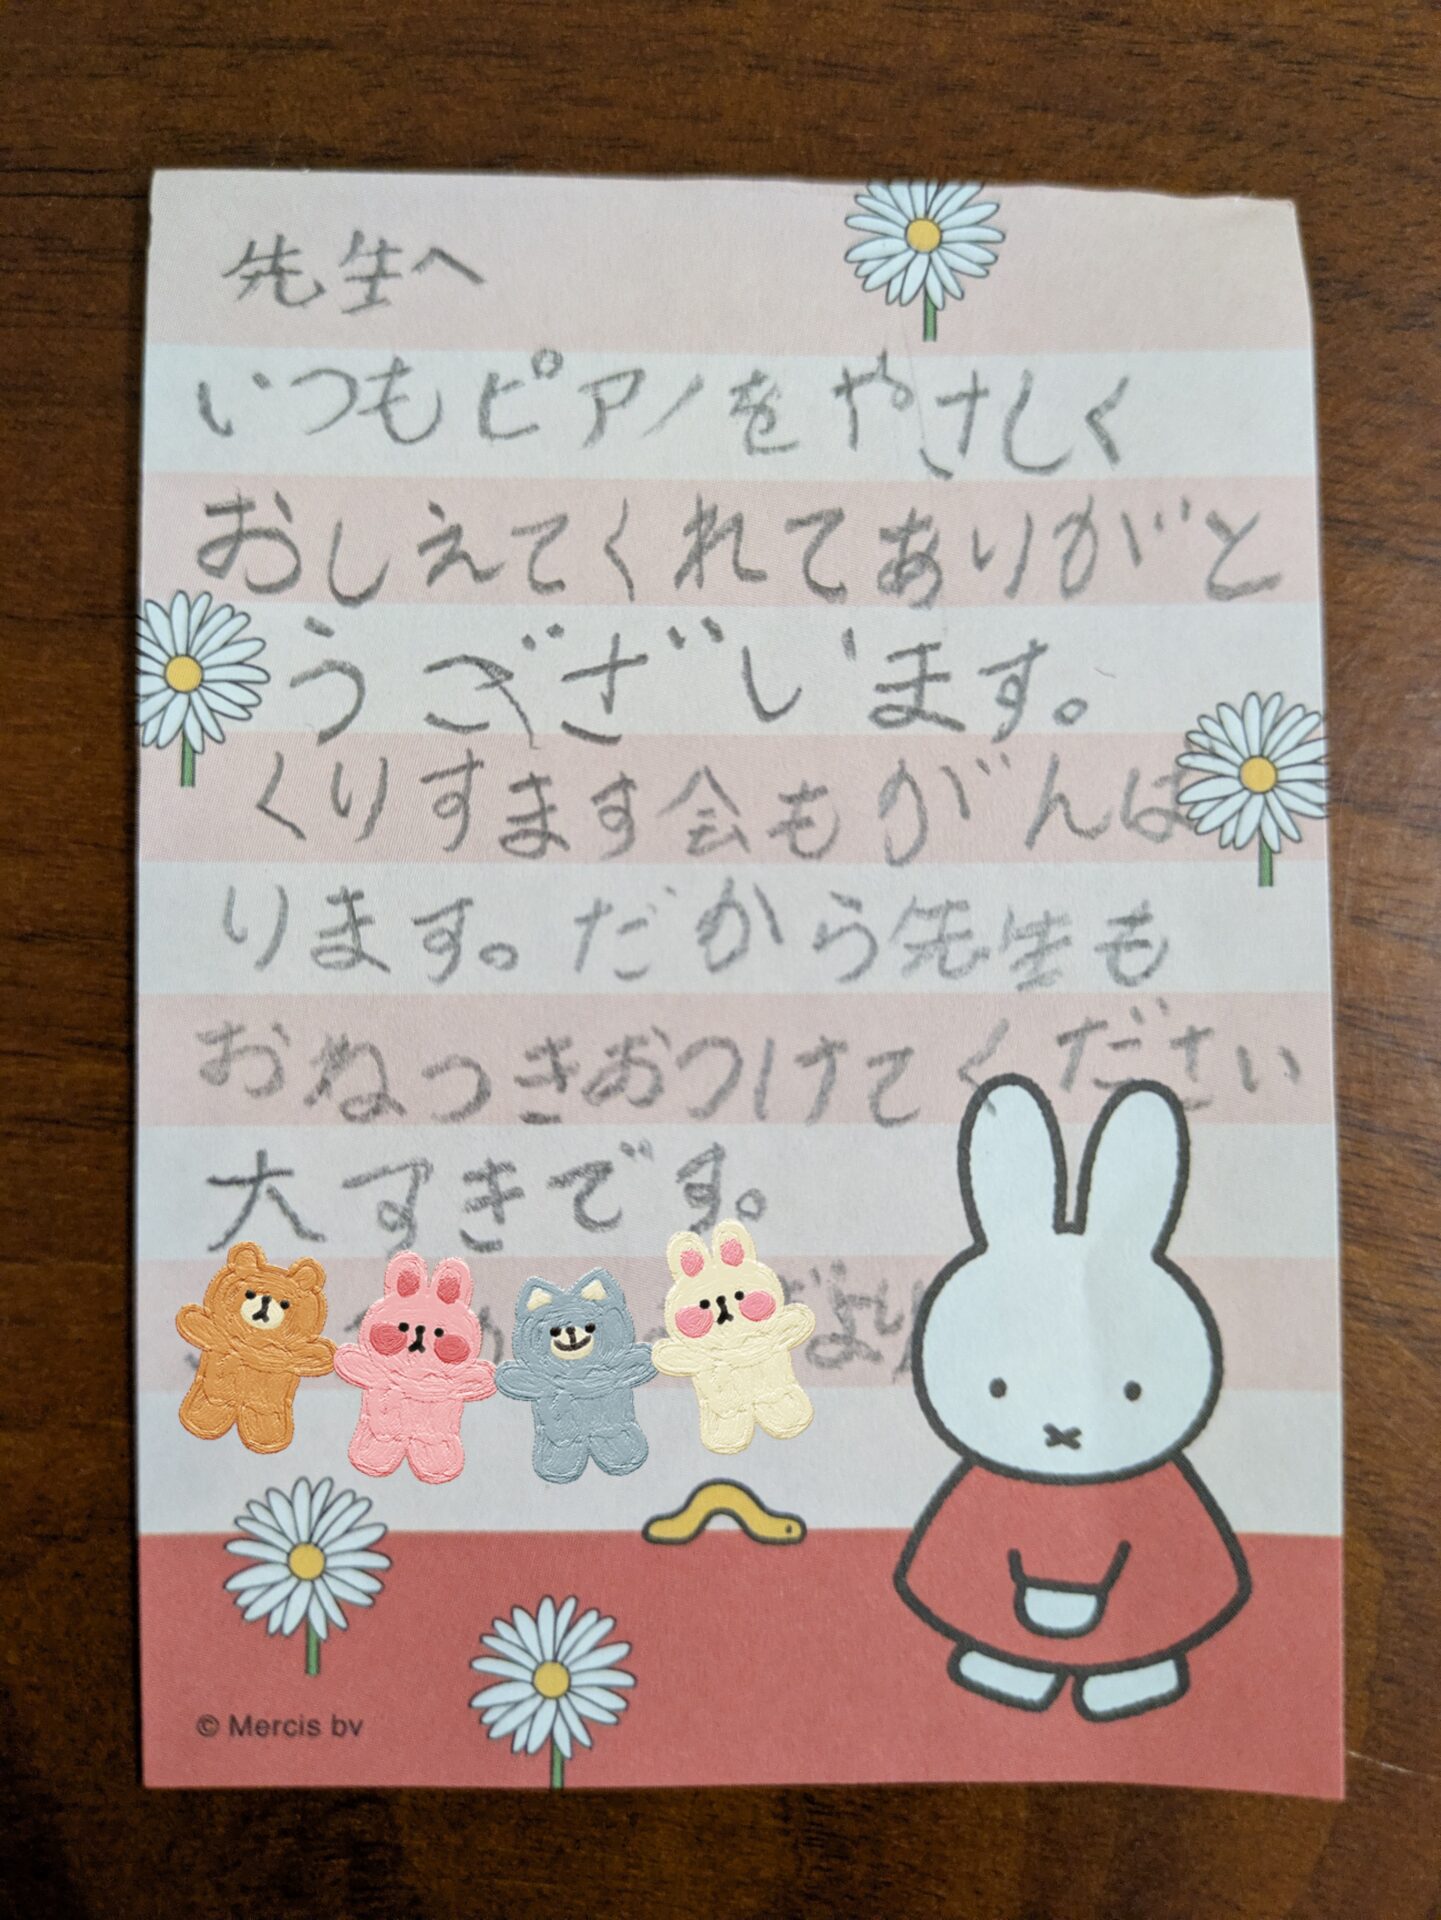 先生へ
いつもピアノをやさしく
おしえてくれてありがと
うございます。
くりすます会もがんば
ります。だから先生も
おねつきおつけてください
大すきです。
より
© Mercis bv